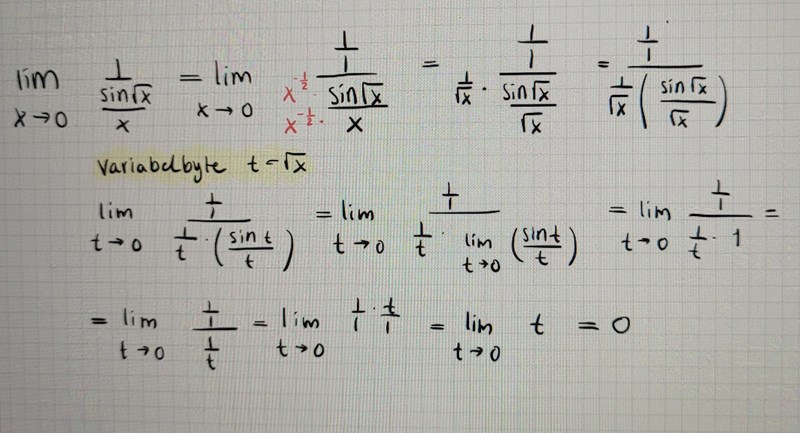 lim x→0 1/(sin√x/x) = lim x→0 (1/1)/(x^(-1/2) · sin√x / x^(-1/2) · x) = (1/1)/(1/√x · (sin√x/√x)) = (1/1)/(1/√x (sin√x/√x))
Variabelbyte t = √x
lim t→0 (1/1)/(1/t · (sin t/t)) = lim t→0 (1/1)/(1/t · lim t→0 (sin t/t)) = lim t→0 (1/1)/(1/t · 1) =
= lim t→0 (1/1)/(1/t) = lim t→0 1/1 · t/1 = lim t→0 t = 0